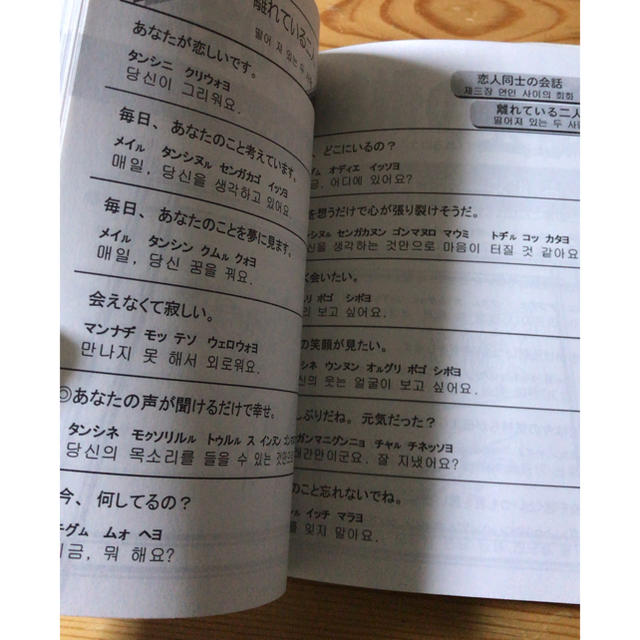 離れている二人
떨어져 있는 두 사
あなたが恋しいです。
タンシニ クリウォヨ
당신이 그리워요.
毎日、あなたのこと考えています。
メイル タンシヌル センガカゴ イッソヨ
매일, 당신을 생각하고 있어요.
毎日、あなたのことを夢に見ます。
メイル タンシン クムル クォヨ
매일, 당신 꿈을 꿔요.
会えなくて寂しい。
マンナヂ モッ テソ ウェロウォヨ
만나지 못 해서 외로워요.
◎あなたの声が聞けるだけで幸せ。
タンシネ モクソリルル トゥルル ス インヌン
당신의 목소리를 들을 수 있는 것만으
今、何してるの？
チグム ムォ ヘヨ
지금, 뭐 해요?
恋人同士の会話
제르장 연인 사이의 회화
離れている二人
떨어져 있는 두 사
、どこにいるの？
オディエ イッソヨ
금, 어디에 있어요?
を想うだけで心が張り裂けそうだ。
シヌル センガカヌン ゴンマヌロ マウミ トヂル コッ カタヨ
신을 생각하는 것만으로 마음이 터질 것 같아요
く会いたい。
リ ボゴ シポヨ
리 보고 싶어요.
の笑顔が見たい。
シネ ウンヌン オルグリ ボゴ シポヨ
신의 웃는 얼굴이 보고 싶어요.
しぶりだね。元気だった？
ガンマニグンニョ チャル チネッソヨ
래간만이군요. 잘 지냈어요?
のこと忘れないでね。
ル イッチ マラヨ
를 잊지 말아요.